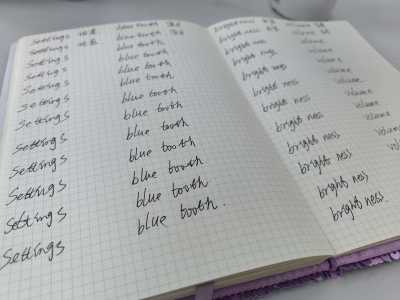 Settings 设置
Settings
Settings
Settings
Settings
Settings
Settings
Settings
Settings
Settings
Settings
Settings
blue tooth
blue tooth
blue tooth
blue tooth
blue tooth
blue tooth
blue tooth
blue tooth
blue tooth
blue tooth
blue tooth
blue tooth.
bright ness
bright ness
bright ness
bright ness
bright ness
bright ness
bright ness
bright ness
bright ness
bright ness
bright ness
bright ness
Volume
Volume
Volume
Volume
Volume
Volume
Volume